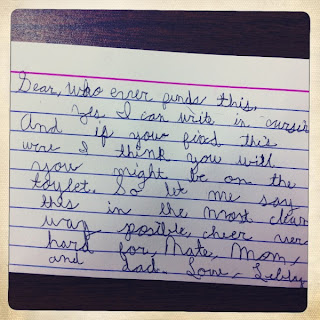 Dear, who ever finds this,
yes I can write in cursiv
And if you find this
were I think you will
you might be on the
toylet. So let me say
this in the most clear
way postible, cheer ver
hard for, Mate, Mom,
and dad. Love - Libby